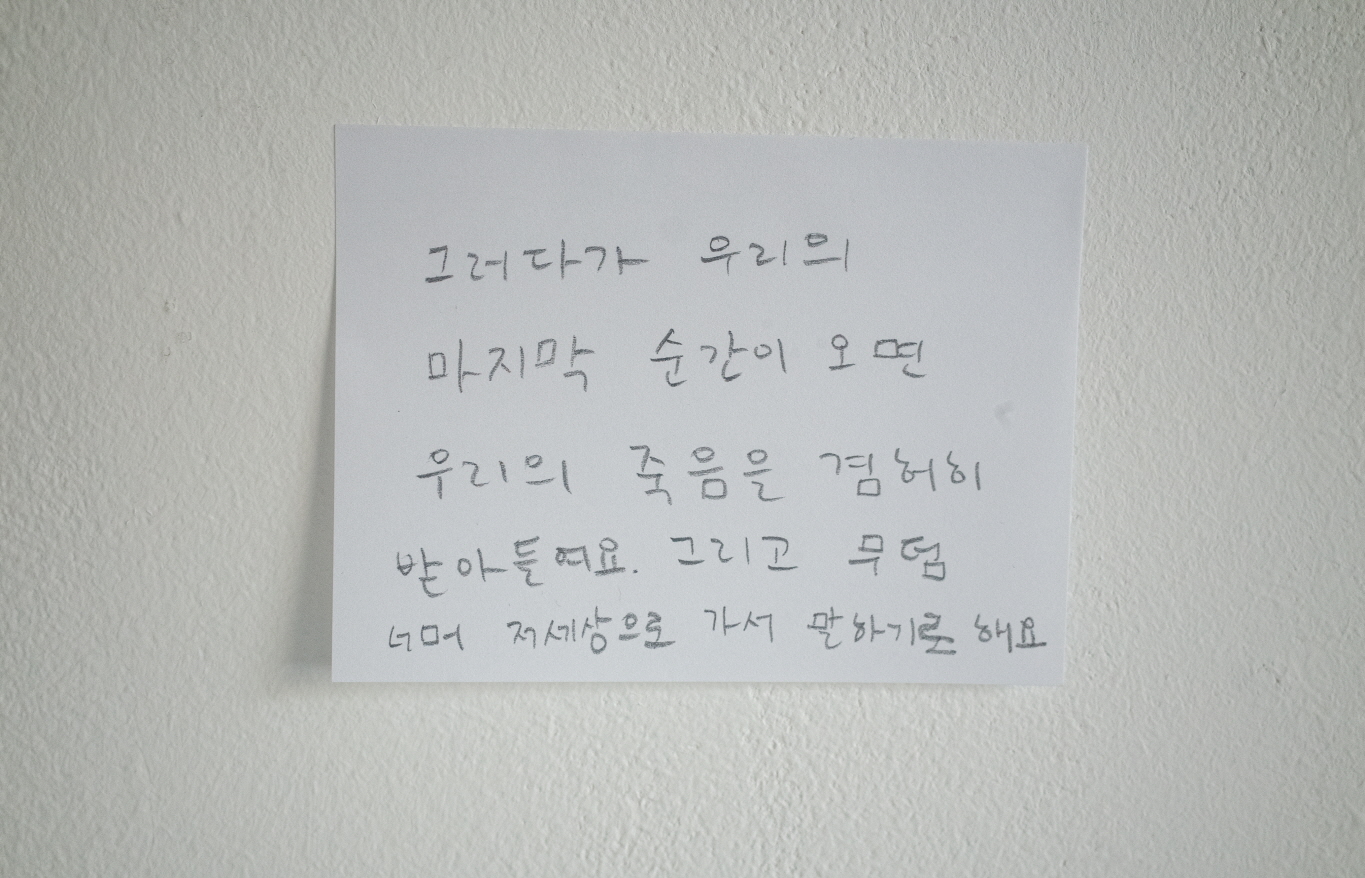 그러다가 우리의
마지막 순간이 오면
우리의 죽음을 겸허히
받아들여요. 그리고 무덤
너머 저세상으로 가서 말하기로 해요